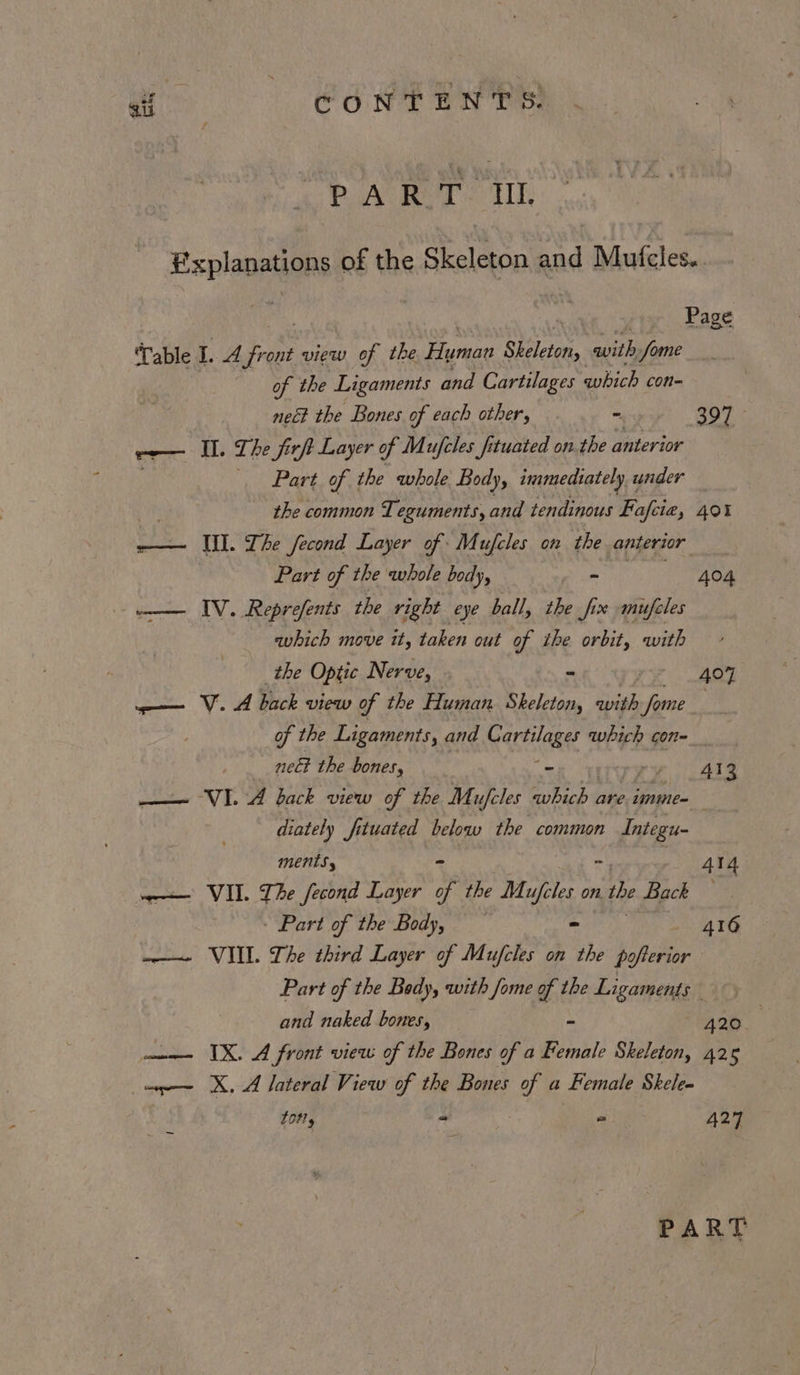 xii CONTENTS.
PART III.
Explanations of the Skeleton and Muſcles.
Page
Table I. A front view of the Human Skeleton, with ſome
of the Ligaments and Cartilages which con-
nect the Bones of each other, - 397
—— II. The firſt Layer of Muſcles ſituated on the anterior
Part of the whole Body, immediately under
the common Teguments, and tendinous Faſciæ, 401
—— III. The ſecond Layer of Muſcles on the anterior
Part of the whole body, - 404
—— IV. Repreſents the right eye ball, the ſix muſcles
which move it, taken out of the orbit, with
the Optic Nerve, - 407
—— V. A back view of the Human Skeleton, with ſome
of the Ligaments, and Cartilages which con-
nect the bones, - 413
—— VI. A back view of the Muſcles which are imme-
diately ſituated below the common Integu-
ments, - - 414
—— VII. The ſecond Layer of the Muſcles on the Back
Part of the Body, - 416
—— VIII. The third Layer of Muſcles on the poſterior
Part of the Body, with ſome of the Ligaments
and naked bones, - 420
—— IX. A front view of the Bones of a Female Skeleton, 425
—— X. A lateral View of the Bones of a Female Skele-
ton, - - 427
PART